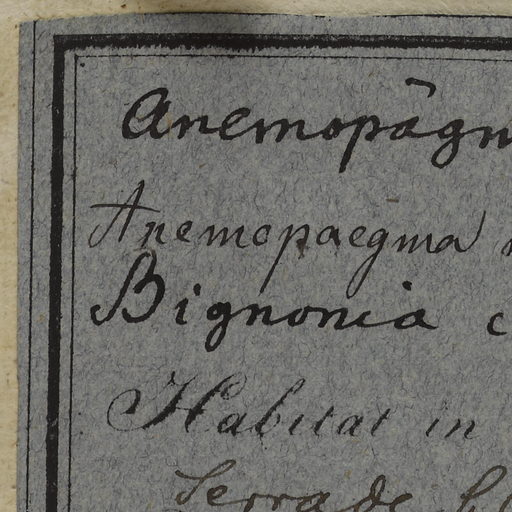 Anemopâgm
Anemopaegma
Bignonia c
Habitat in
Serra de